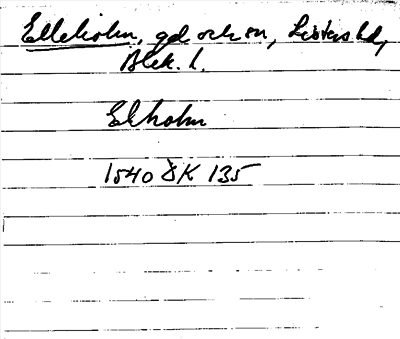 Elleholm, gd och sn, Listers hd,
Blek. l.
Elholm
1540 ÖK 135